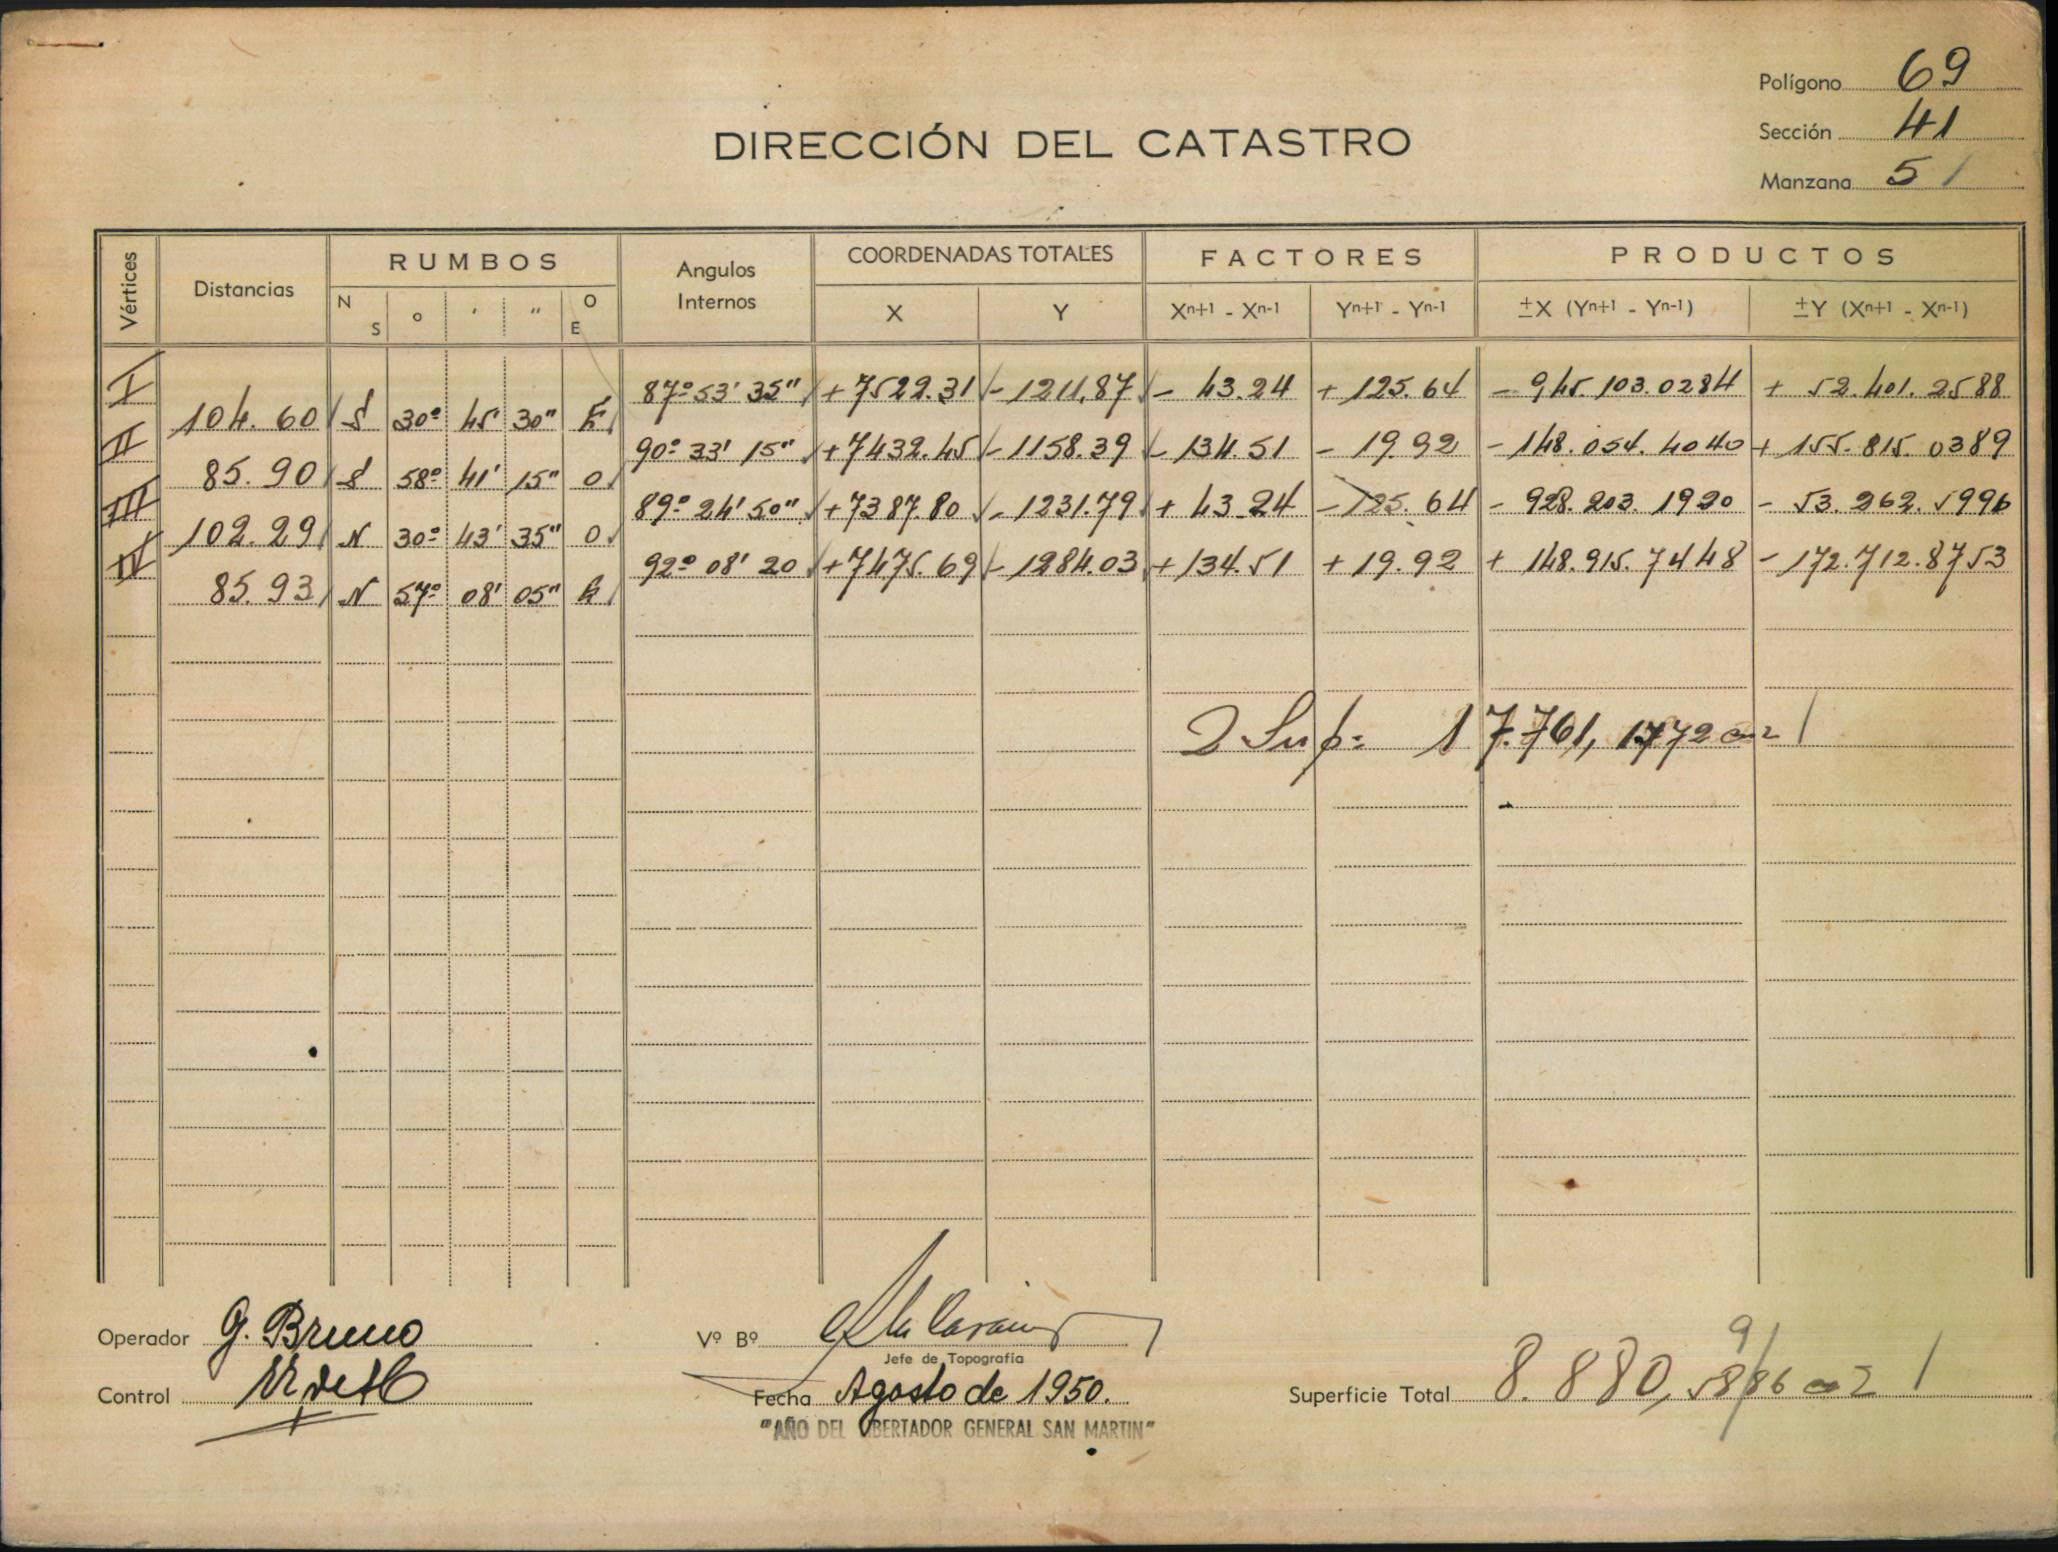 Polígono 69
Sección 41
Manzana 51
DIRECCIÓN DEL CATASTRO
Vértices Distancias RUMBOS Angulos Internos COORDENADAS TOTALES FACTORES PRODUCTOS
N S o ' " O E X Y Xn+1 - Xn-1 Yn+1 - Yn-1 ±X (Yn+1 - Yn-1) ±Y (Xn+1 - Xn-1)
I 87º 53' 35" +7522.31 -1211,87 - 43.24 + 125.64 - 945.103.0284 + 52.401.2588
104.60 S 30º 45' 30" E
II 90º 33' 15" +7432.45 -1158.39 -134.51 - 19.92 -148.054.4040 + 155.815.0389
85.90 S 58º 41' 15" O
III 89º 24' 50" +7387.80 -1231.79 + 43.24 -125.64 - 928.203.1920 - 53.262.5996
102.29 N 30º 43' 35" O
IV 92º 08' 20 +7475.69 -1284.03 +134.51 + 19.92 + 148.915.7448 - 172.712.8753
85.93 N 57º 08' 05" E
2 Sup= 17.761,1772 m2
Operador G. Bruno
Vº Bº
Jefe de Topografía
Control
Fecha Agosto de 1950.
Superficie Total 8.880,5886 m2
9
"AÑO DEL LIBERTADOR GENERAL SAN MARTIN"